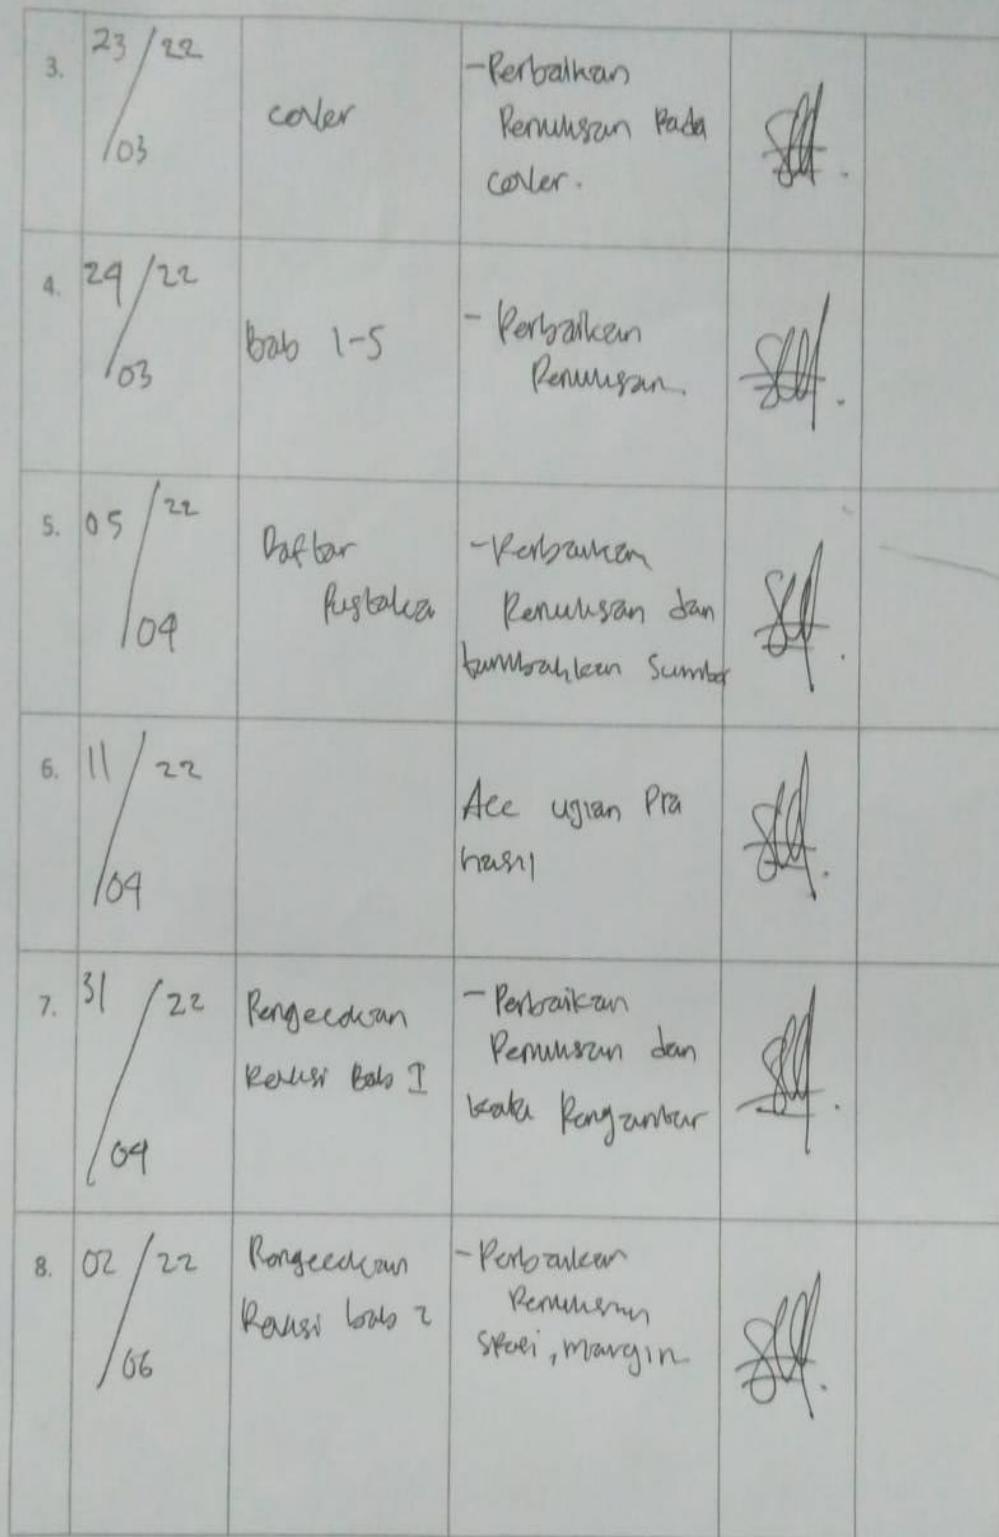 3. 23/22
/03
cover
-Perbaikan
Penulisan Pada
cover.
4. 24/22
/03
Bab 1-5
- Perbaikan
Penulisan.
5. 05/22
/04
Daftar
Pustaka
-Perbaikan
Penulisan dan
tambahkan Sumber
6. 11/22
/04
Acc ujian Pra
hasil
7. 31/22
/04
Pengecekan
Revisi Bab I
- Perbaikan
Penulisan dan
kata Pengantar
8. 02/22
/06
Pengecekan
Revisi bab 2
- Perbaikan
Penulisan
spasi, margin